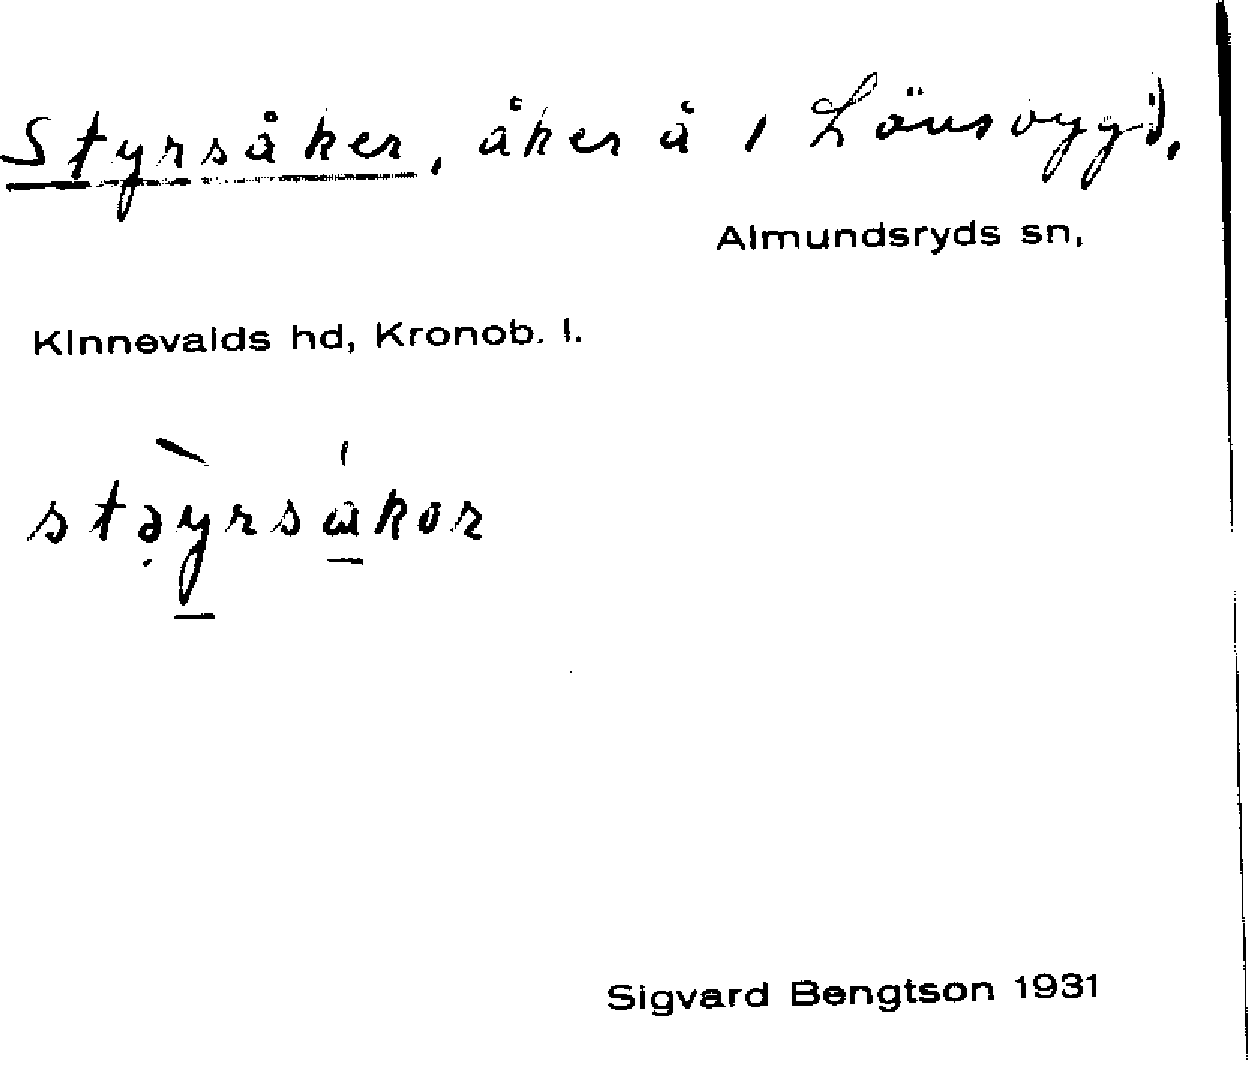 Styrsåker, åker å 1 Lönsbygd,
Almundsryds sn,
Kinnevalds hd, Kronob. l.
Sigvard Bengtson 1931